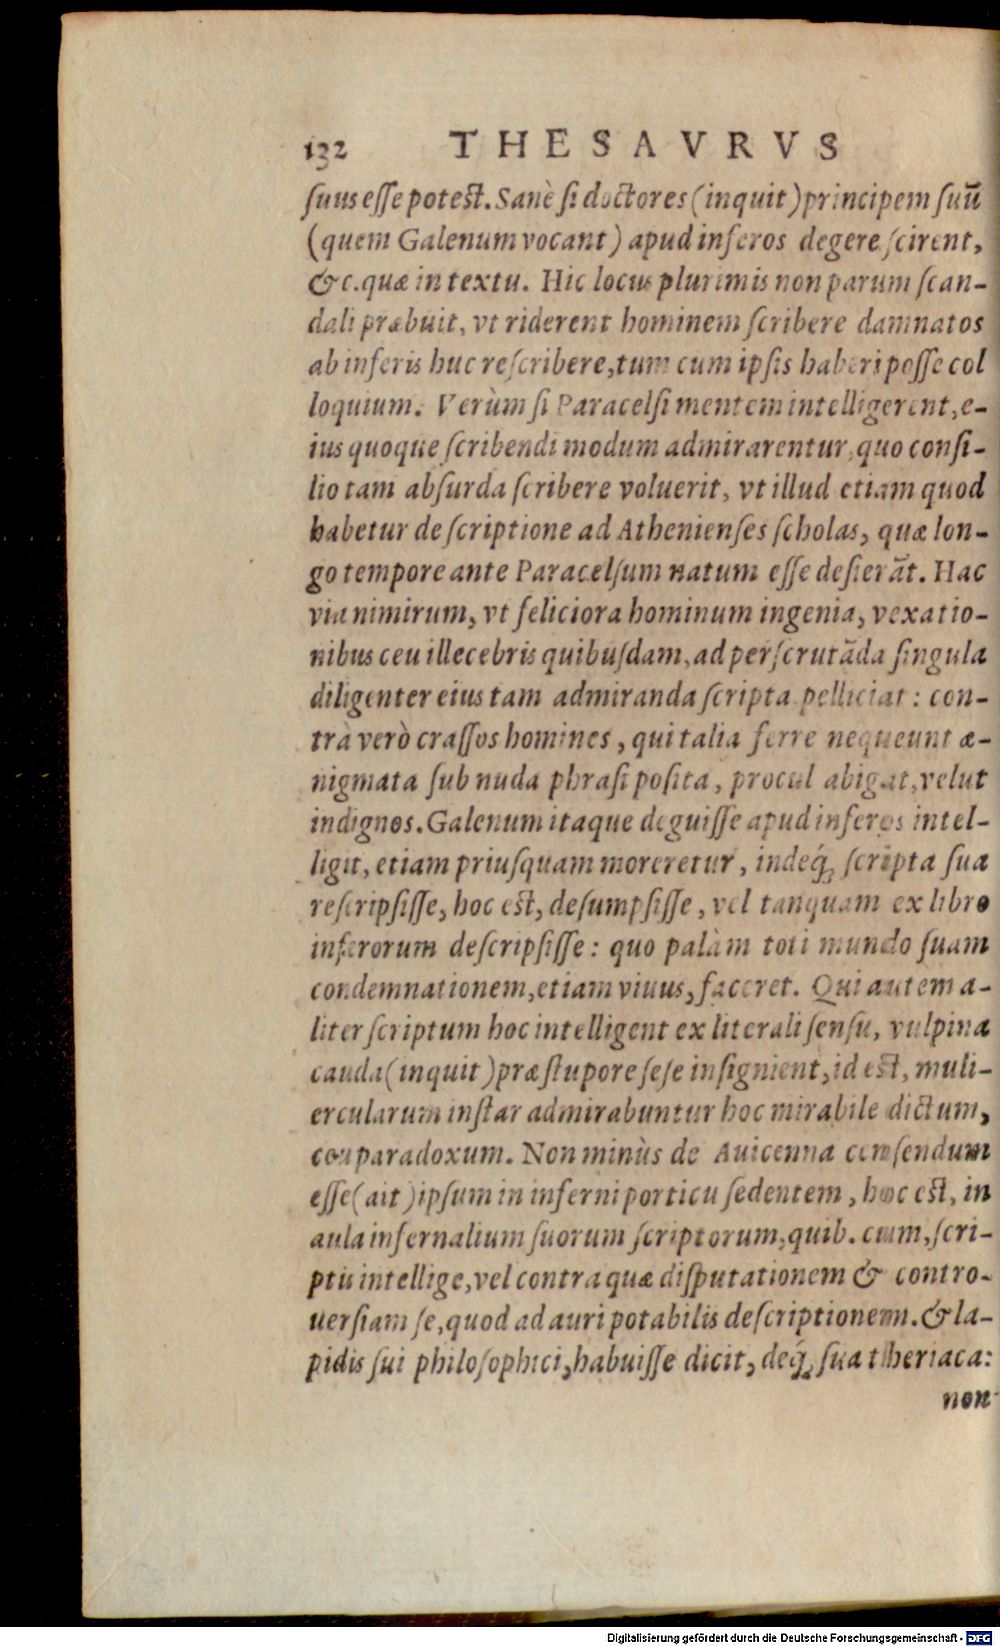 132 THESAVRVS
ſuus eſſe poteſt. Sanè ſi doctores (inquit) principem ſuū
(quem Galenum vocant) apud inferos degere ſcirent,
&c. quæ in textu. Hic locus plurimis non parum ſcan-
dali præbuit, vt riderent hominem ſcribere damnatos
ab inferis huc reſcribere, tum cum ipſis haberi poſſe col
loquium. Verùm ſi Paracelſi mentem intelligerent, e-
ius quoque ſcribendi modum admirarentur, quo conſi-
lio tam abſurda ſcribere voluerit, vt illud etiam quod
habetur de ſcriptione ad Athenienſes ſcholas, quæ lon-
go tempore ante Paracelſum natum eſſe deſierāt. Hac
via nimirum, vt feliciora hominum ingenia, vexatio-
nibus ceu illecebris quibuſdam, ad perſcrutāda ſingula
diligenter eius tam admiranda ſcripta pelliciat: con-
trà verò craſſos homines, qui talia ferre nequeunt æ-
nigmata ſub nuda phraſi poſita, procul abigat, velut
indignos. Galenum itaque deguiſſe apud inferos intel-
ligit, etiam priuſquam moreretur, indeq́; ſcripta ſua
reſcripſiſſe, hoc eſt, deſumpſiſſe, vel tanquam ex libro
inferorum deſcripſiſſe: quo palàm toti mundo ſuam
condemnationem, etiam viuus, faceret. Qui autem a-
liter ſcriptum hoc intelligent ex literali ſenſu, vulpina
cauda (inquit) præ ſtupore ſeſe inſignient, id eſt, muli-
ercularum inſtar admirabuntur hoc mirabile dictum,
ceu paradoxum. Non minùs de Auicenna cenſendum
eſſe (ait) ipſum in inferni porticu ſedentem, hoc eſt, in
aula infernalium ſuorum ſcriptorum, quib. cum, ſcri-
ptis intellige, vel contra quæ diſputationem & contro-
uerſiam ſe, quod ad auri potabilis deſcriptionem. & la-
pidis ſui philoſophici, habuiſſe dicit, deq́; ſua theriaca:
non
Digitalisierung gefördert durch die Deutsche Forschungsgemeinschaft - DFG